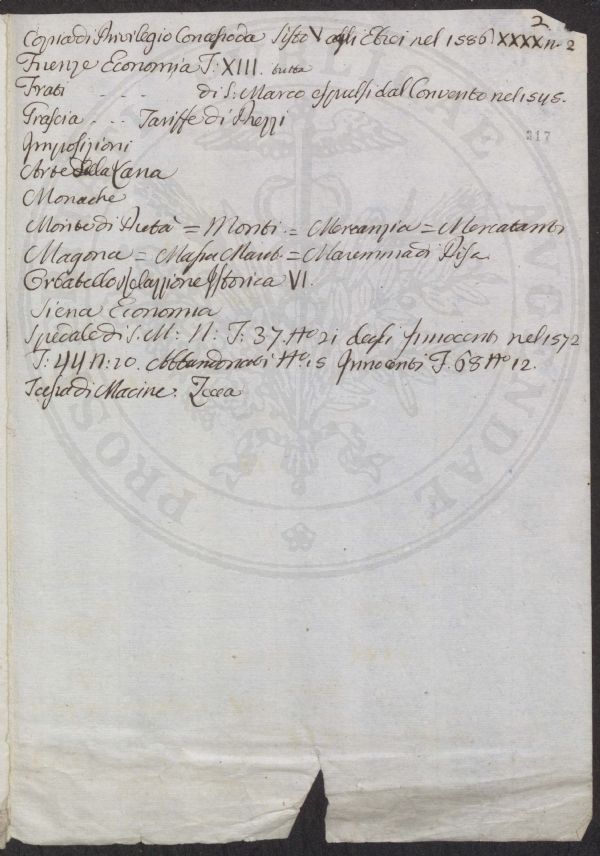 2
Copia di Privilegio Concesso da Sisto V agli Ebrei nel 1586 XXXX n. 2
Firenze Economia T: XIII. tutta
Frati - - - di S: Marco espulsi dal Convento nel 1545.
317
Grascia - - Tariffe di Prezzi
Imposizioni
Arte della Lana
Monache
Monte di Pietà = Monti = Mercanzia = Mercatanti
Magona = Maremma di Pisa
Orbatello Relazzione Istorica VI.
Siena Economia
Spedale di S. M: N: T: 37. No 21 degl' Innocenti nel 1572
T: 44 n: 20. Abbandonati No 15 Innocenti T. 68 No 12.
Tassa di Macine. Zecca
PROS
AUGENDAE